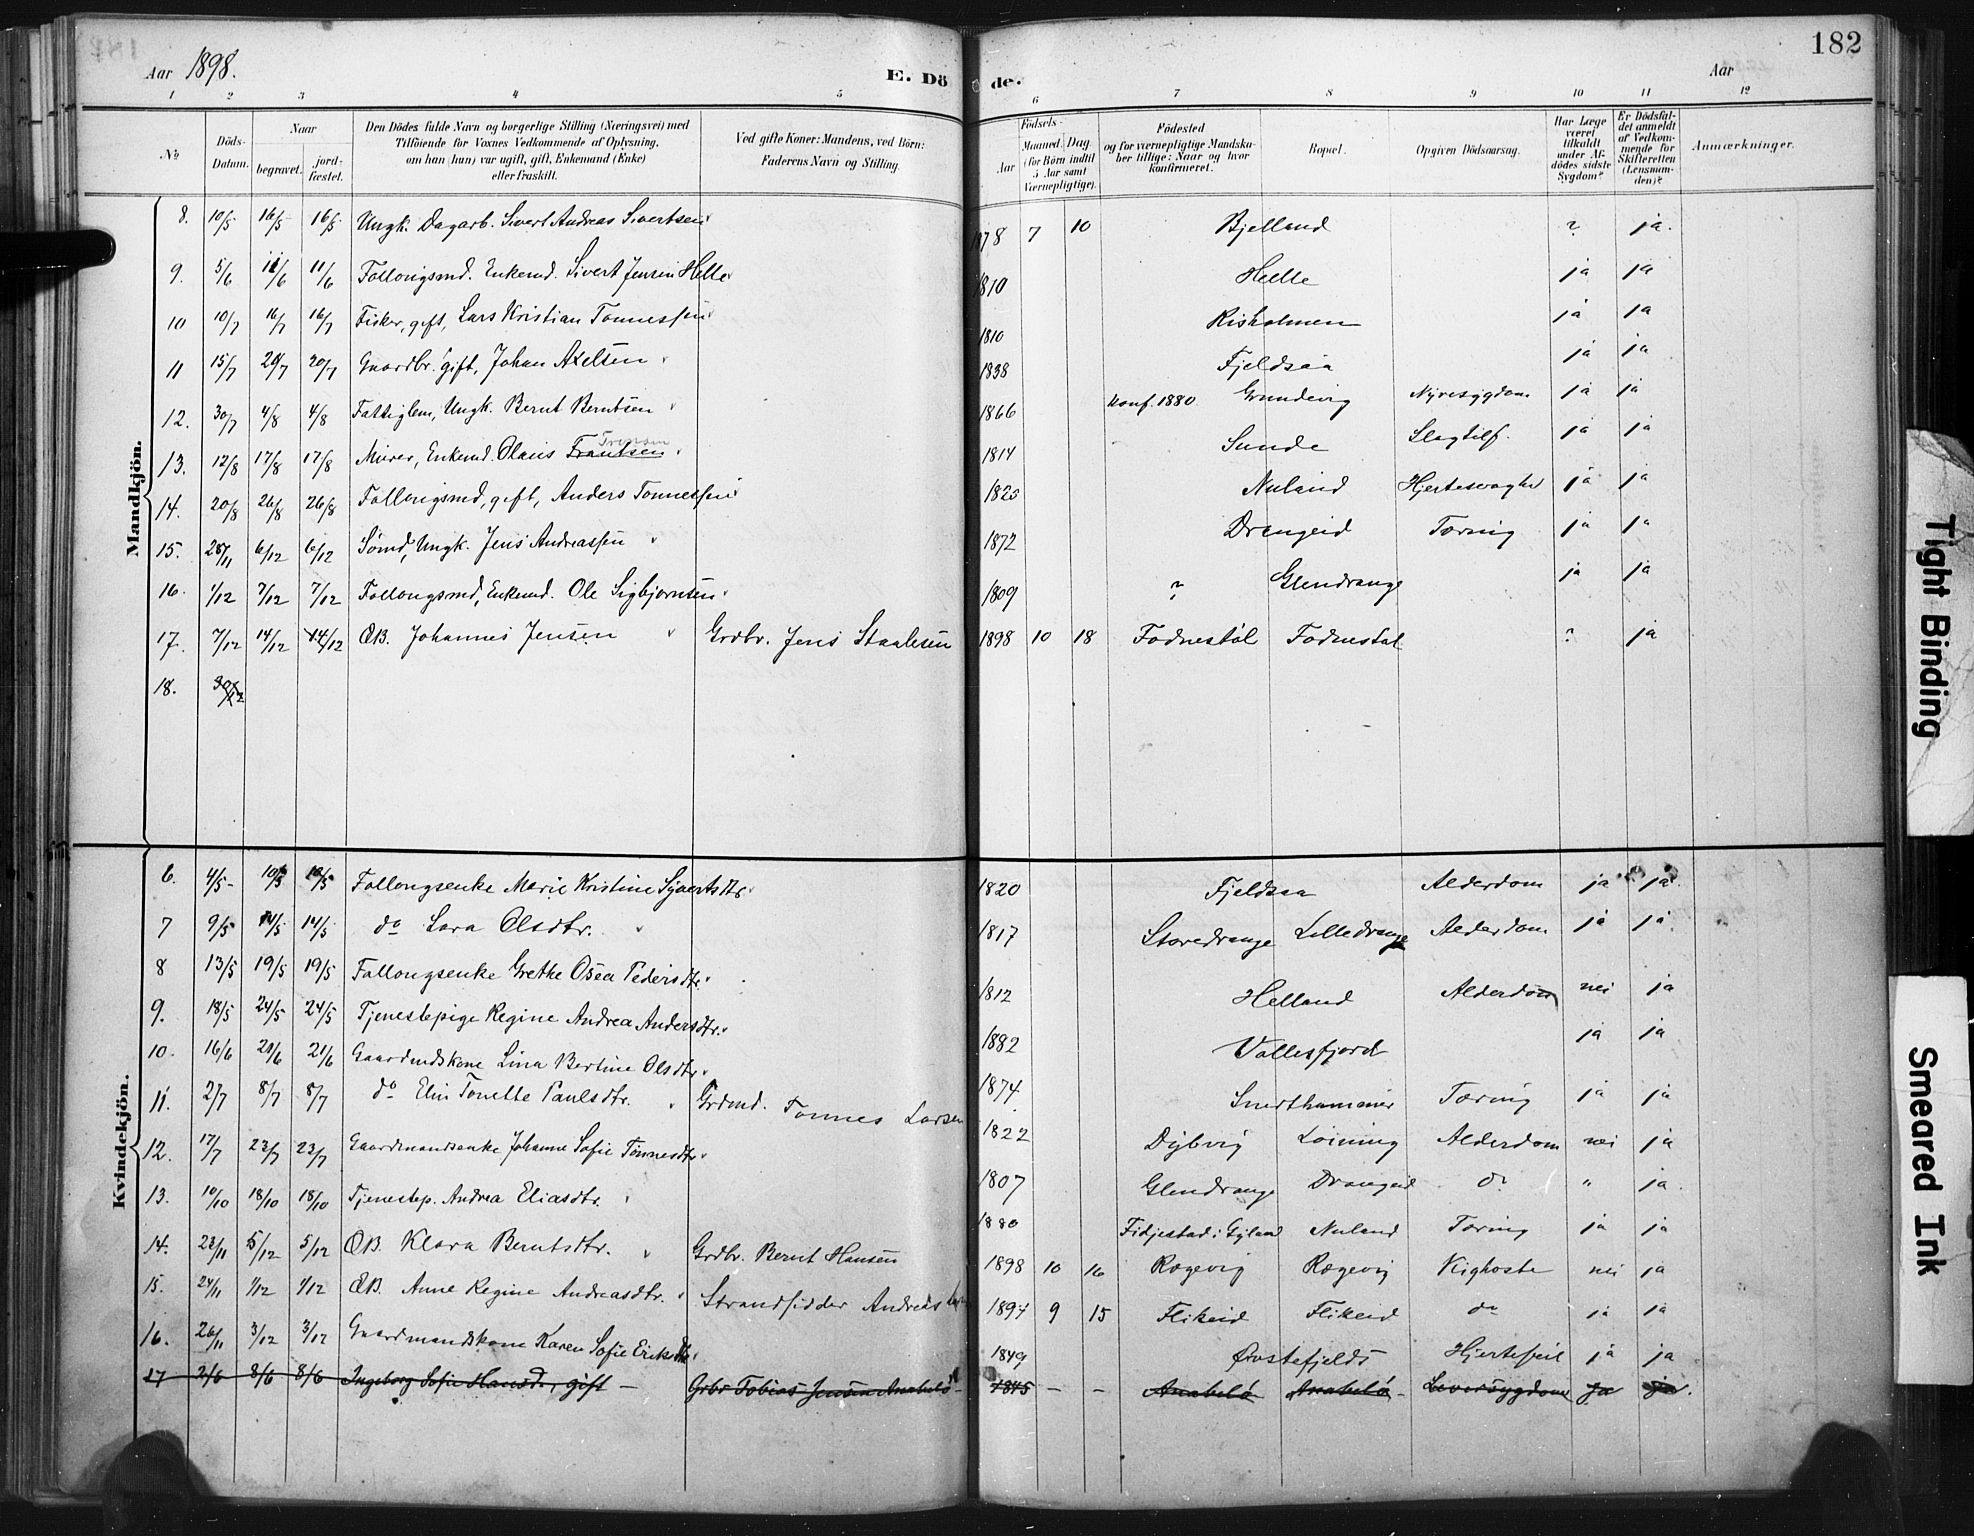 182
Aar 1898.
E. Dö
de.
Aar
1 2 3 4 5 6 7 8 9 10 11 12
No
Döds-Datum.
Naar
begravet.
jord-fæstet.
Den Dödes fulde Navn og borgerlige Stilling (Næringsvei) med
Tilföiende for Voxnes Vedkommende af Oplysning,
om han (hun) var ugift, gift, Enkemand (Enke)
eller fraskilt.
Ved gifte Koner: Mandens, ved Börn:
Faderens Navn og Stilling.
Födsels-
Aar
Maaned. Dag
(for Börn indtil
5 Aar samt
Værnepligtige).
Födested
og for værnepligtige Mandska-
ber tillige: Naar og hvor
konfirmeret.
Bopæl.
Opgiven Dödsaarsag.
Har Læge
været
tilkaldt
under Af-
dödes sidste
Sygdom?
Er Dödsfal-
det anmeldt
af Vedkom-
mende for
Skifteretten
(Lensman-
den)?
Anmærkninger.
Mandkjön.
8. 10/5 16/5 16/5 Ungk. Dagarb. Sivert Andreas Sivertsen 1878 7 10 Bjelland ? ja.
9. 5/6 11/6 11/6 Follougsmd. Enkemd. Sivert Jensen Helle 1810 Helle ja ja
10 10/7 16/7 16/7 Fisker, gift, Lars Kristian Tønnessen 1810 Risholmen ja ja
11 15/7 20/7 20/7 Gaardbr. gift, Johan Axelsen 1838 Fjeldsaa ja ja
12. 30/7 4/8 4/8 Fattiglem, Ungk. Bernt Berntsen 1866 Konf. 1880. Grundevig Nyresygdom ja ja
13. 12/8 17/8 17/8 Murer, Enkemd. Olaus Frantsen 1814 Sunde Slagtilf. ja ja
14. 20/8 26/8 26/8 Follougsmd, gift, Anders Tønnessen 1825 Nuland Hjertesvaghed ja ja
15. 28/11 6/12 6/12 Sømd, Ungk. Jens Andreassen 1872 Drangeid Tæring ja ja
16. 1/12 7/12 7/12 Follougsmd, Enkemd. Ole Sigbjørnsen 1809 ? Glendrange ja ja
17. 7/12 14/12 14/12 ÆB. Johannes Jensen Grdbr. Jens Staalesen 1898 10 18 Fodnestøl Fodnestøl ? ja
18. 30/12
Kvindekjön.
6. 4/5 10/5 10/5 Follougsenke Marie Kristine Syvertsdtr. 1820 Fjeldsaa Alderdom ja ja.
7 9/5 14/5 14/5 do Sara Olsdtr. 1817 Storedrange Lilledrange Alderdom ja ja.
8 13/5 19/5 19/5 Follougsenke Grethe Osea Pedersdtr. 1812 Helland Alderdom nei ja
9. 18/5 24/5 24/5 Tjenestepige Regine Andrea Andersdtr. 1882 Vollesfjord ja ja
10. 16/6 21/6 21/6 Gaardmdskone Lina Bertine Olsdtr. 1874 Snerthammer Tæring ja ja
11. 2/7 8/7 8/7 do Elen Tonette Paulsdtr. Grdmd. Tønnes Larsen 1822 Dybvig Løining Alderdom nei ja
12. 17/7 23/7 23/7 Gaardmandsenke Johanne Sofie Tønnesdtr. 1807 Glendrange Drangeid do " ja.
13. 10/10 18/10 18/10 Tjenestep. Andrea Eliasdtr. 1880 Fidjestad i Gyland Nuland Tæring ja ja
14. 23/11 5/12 5/12 ÆB. Klara Berntsdtr. Grdbr. Bernt Hansen 1898 10 16 Rægevig Rægevig Kighoste nei ja
15. 24/11 1/12 1/12 ÆB. Anne Regine Andreasdtr. Strandsidder Andreas 1897 9 15 Flikeid Flikeid do ja ja
16. 26/11 3/12 3/12 Gaardmandskone Karen Sofie Eriksdtr. 1849 Øvstefjelds Hjertefeil ja ja
17 2/6 8/6 8/6 Ingeborg Sofie Hansd., gift – Grbr Tobias Jensen Anabelø – 1845 – – Anabelø Anabelø – Leversygdom ja ja.
Tight Binding
Smeared Ink